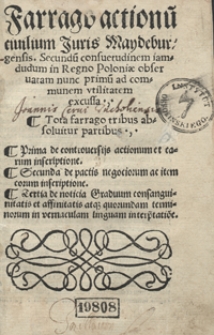 Farrago actionū
ciuilium Juris Maydebur-
gensis. Secundū consuetudinem iam-
dudum in Regno Poloniæ obser
uatam nunc primū ad com
munem vtilitatem
excussa:
Joannis
¶ Tota farrago tribus ab
soluitur partibus.
¶ Prima de controuersijs actionum et ea
rum inscriptione.
¶ Secunda de pactis negociorum ac item
eorum inscriptione.
¶ Tertia de noticia Graduum consangui-
nitatis et affinitatis atq; quorundam termi-
norum in vernaculam linguam interptatiōe.
19808